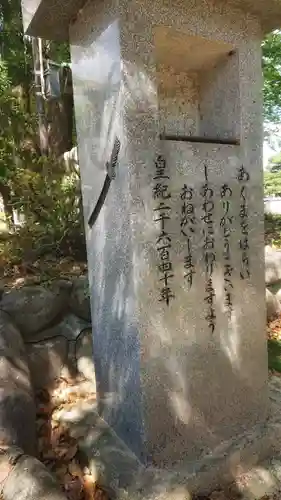 あくまをはらい
ありがとうございます
しあわせになりますよう
おねがいします
皇紀二千六百四十年